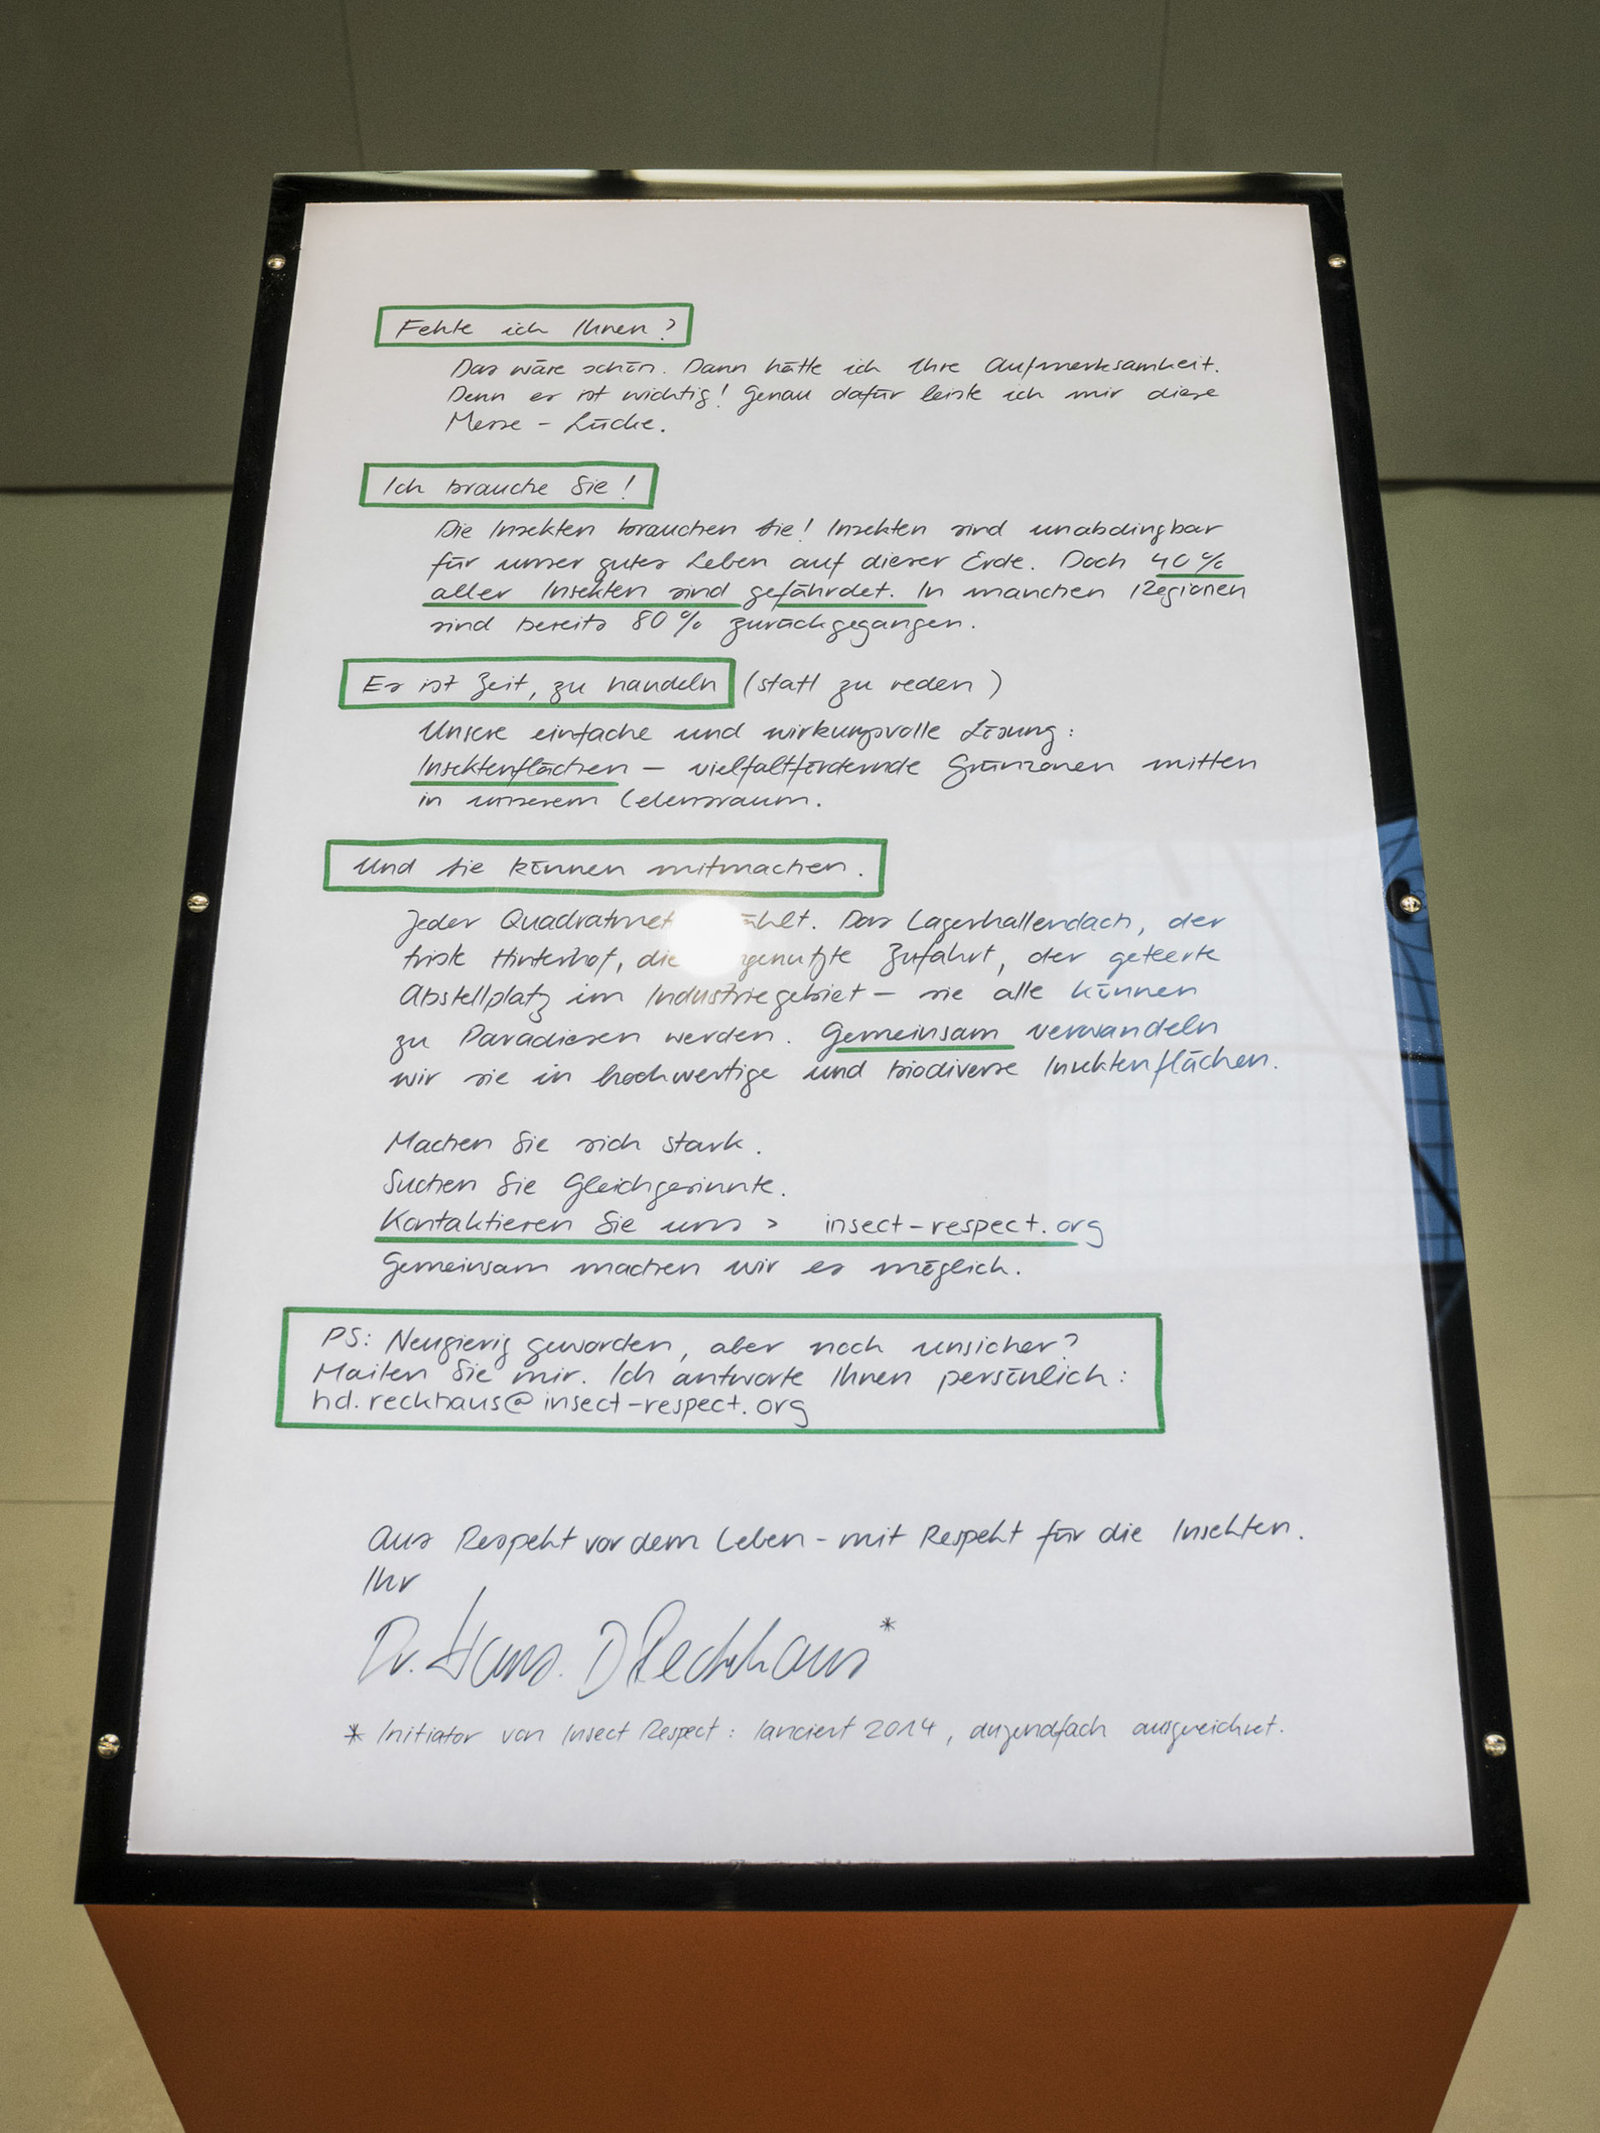 Fehle ich Ihnen?
Das wäre schön. Dann hätte ich Ihre Aufmerksamkeit.
Denn es ist wichtig! Genau dafür leiste ich mir diese
Messe - Lücke.
Ich brauche Sie!
Die Insekten brauchen Sie! Insekten sind unabdingbar
für unser gutes Leben auf dieser Erde. Doch 40%
aller Insekten sind gefährdet. In manchen Regionen
sind bereits 80% zurückgegangen.
Es ist Zeit, zu handeln (statt zu reden)
Unsere einfache und wirkungsvolle Lösung:
Insektenflächen – vielfaltfördernde Grünzonen mitten
in unserem Lebensraum.
Und Sie können mitmachen.
Jeder Das Lagerhallendach, der
triste Hinterhof, die Zufahrt, der geteerte
Abstellplatz im Industriegebiet – sie alle können
zu Paradiesen werden. Gemeinsam verwandeln
wir sie in hochwertige und biodiverse Insektenflächen.
Machen Sie sich stark.
Suchen Sie Gleichgesinnte.
Kontaktieren Sie uns > insect-respect.org
Gemeinsam machen wir es möglich.
PS: Neugierig geworden, aber noch unsicher?
Mailen Sie mir. Ich antworte Ihnen persönlich:
hd.reckhaus@insect-respect.org
Aus Respekt vor dem Leben – mit Respekt für die Insekten.
Ihr
Dr. Hans. D Reckhaus*
* Initiator von Insect Respect: lanciert 2014, dutzendfach ausgezeichnet.